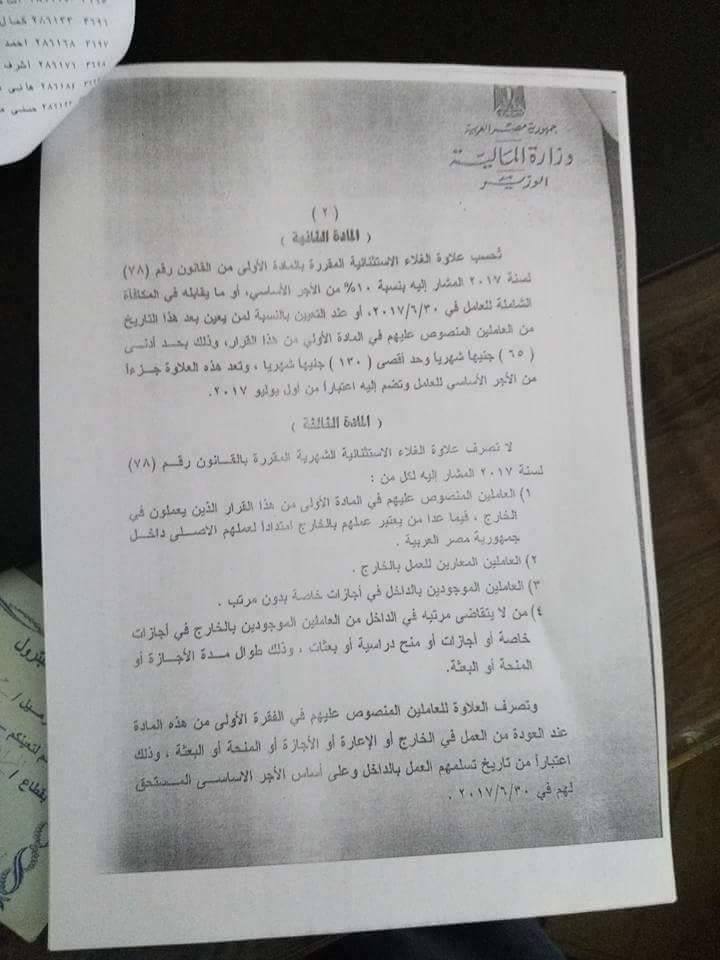 ٣٦٩١ ٢٨٦١٣٣
٣٦٩٧ ٢٨٦١٦٨ احمد
٢٨٦١٧٦ اشرف
٢٨٦١٨٤ هانى
جمهورية مصر العربية
وزارة المالية
الوزير
(٢)
( المادة الثانية )
تُحسب علاوة الغلاء الاستثنائية المقررة بالمادة الأولى من القانون رقم (٧٨)
لسنة ٢٠١٧ المشار إليه بنسبة ١٠% من الأجر الأساسي، أو ما يقابله في المكافأة
الشاملة للعامل في ٢٠١٧/٦/٣٠، أو عند التعيين بالنسبة لمن يعين بعد هذا التاريخ
من العاملين المنصوص عليهم في المادة الأولي من هذا القرار، وذلك بحد أدنى
( ٦٥ ) جنيها شهريا وحد أقصى ( ١٣٠ ) جنيها شهريا ، وتعد هذه العلاوة جزءاً
من الأجر الأساسي للعامل وتضم إليه اعتباراً من أول يوليو ٢٠١٧.
( المادة الثالثة )
لا تصرف علاوة الغلاء الاستثنائية الشهرية المقررة بالقانون رقم (٧٨)
لسنة ٢٠١٧ المشار إليه لكل من :
١) العاملين المنصوص عليهم في المادة الأولى من هذا القرار الذين يعملون في
الخارج ، فيما عدا من يعتبر عملهم بالخارج امتداداً لعملهم الاصلى داخل
جمهورية مصر العربية .
٢) العاملين المعارين للعمل بالخارج .
٣) العاملين الموجودين بالداخل في أجازات خاصة بدون مرتب .
٤) من لا يتقاضى مرتبه في الداخل من العاملين الموجودين بالخارج في أجازات
خاصة أو أجازات أو منح دراسية أو بعثات ، وذلك طوال مدة الأجازة أو
المنحة أو البعثة.
وتصرف العلاوة للعاملين المنصوص عليهم في الفقرة الأولى من هذه المادة
عند العودة من العمل في الخارج أو الإعارة أو الأجازة أو المنحة أو البعثة ، وذلك
اعتباراً من تاريخ تسلمهم العمل بالداخل وعلى أساس الأجر الاساسى المستحق
لهم في ٢٠١٧/٦/٣٠ .